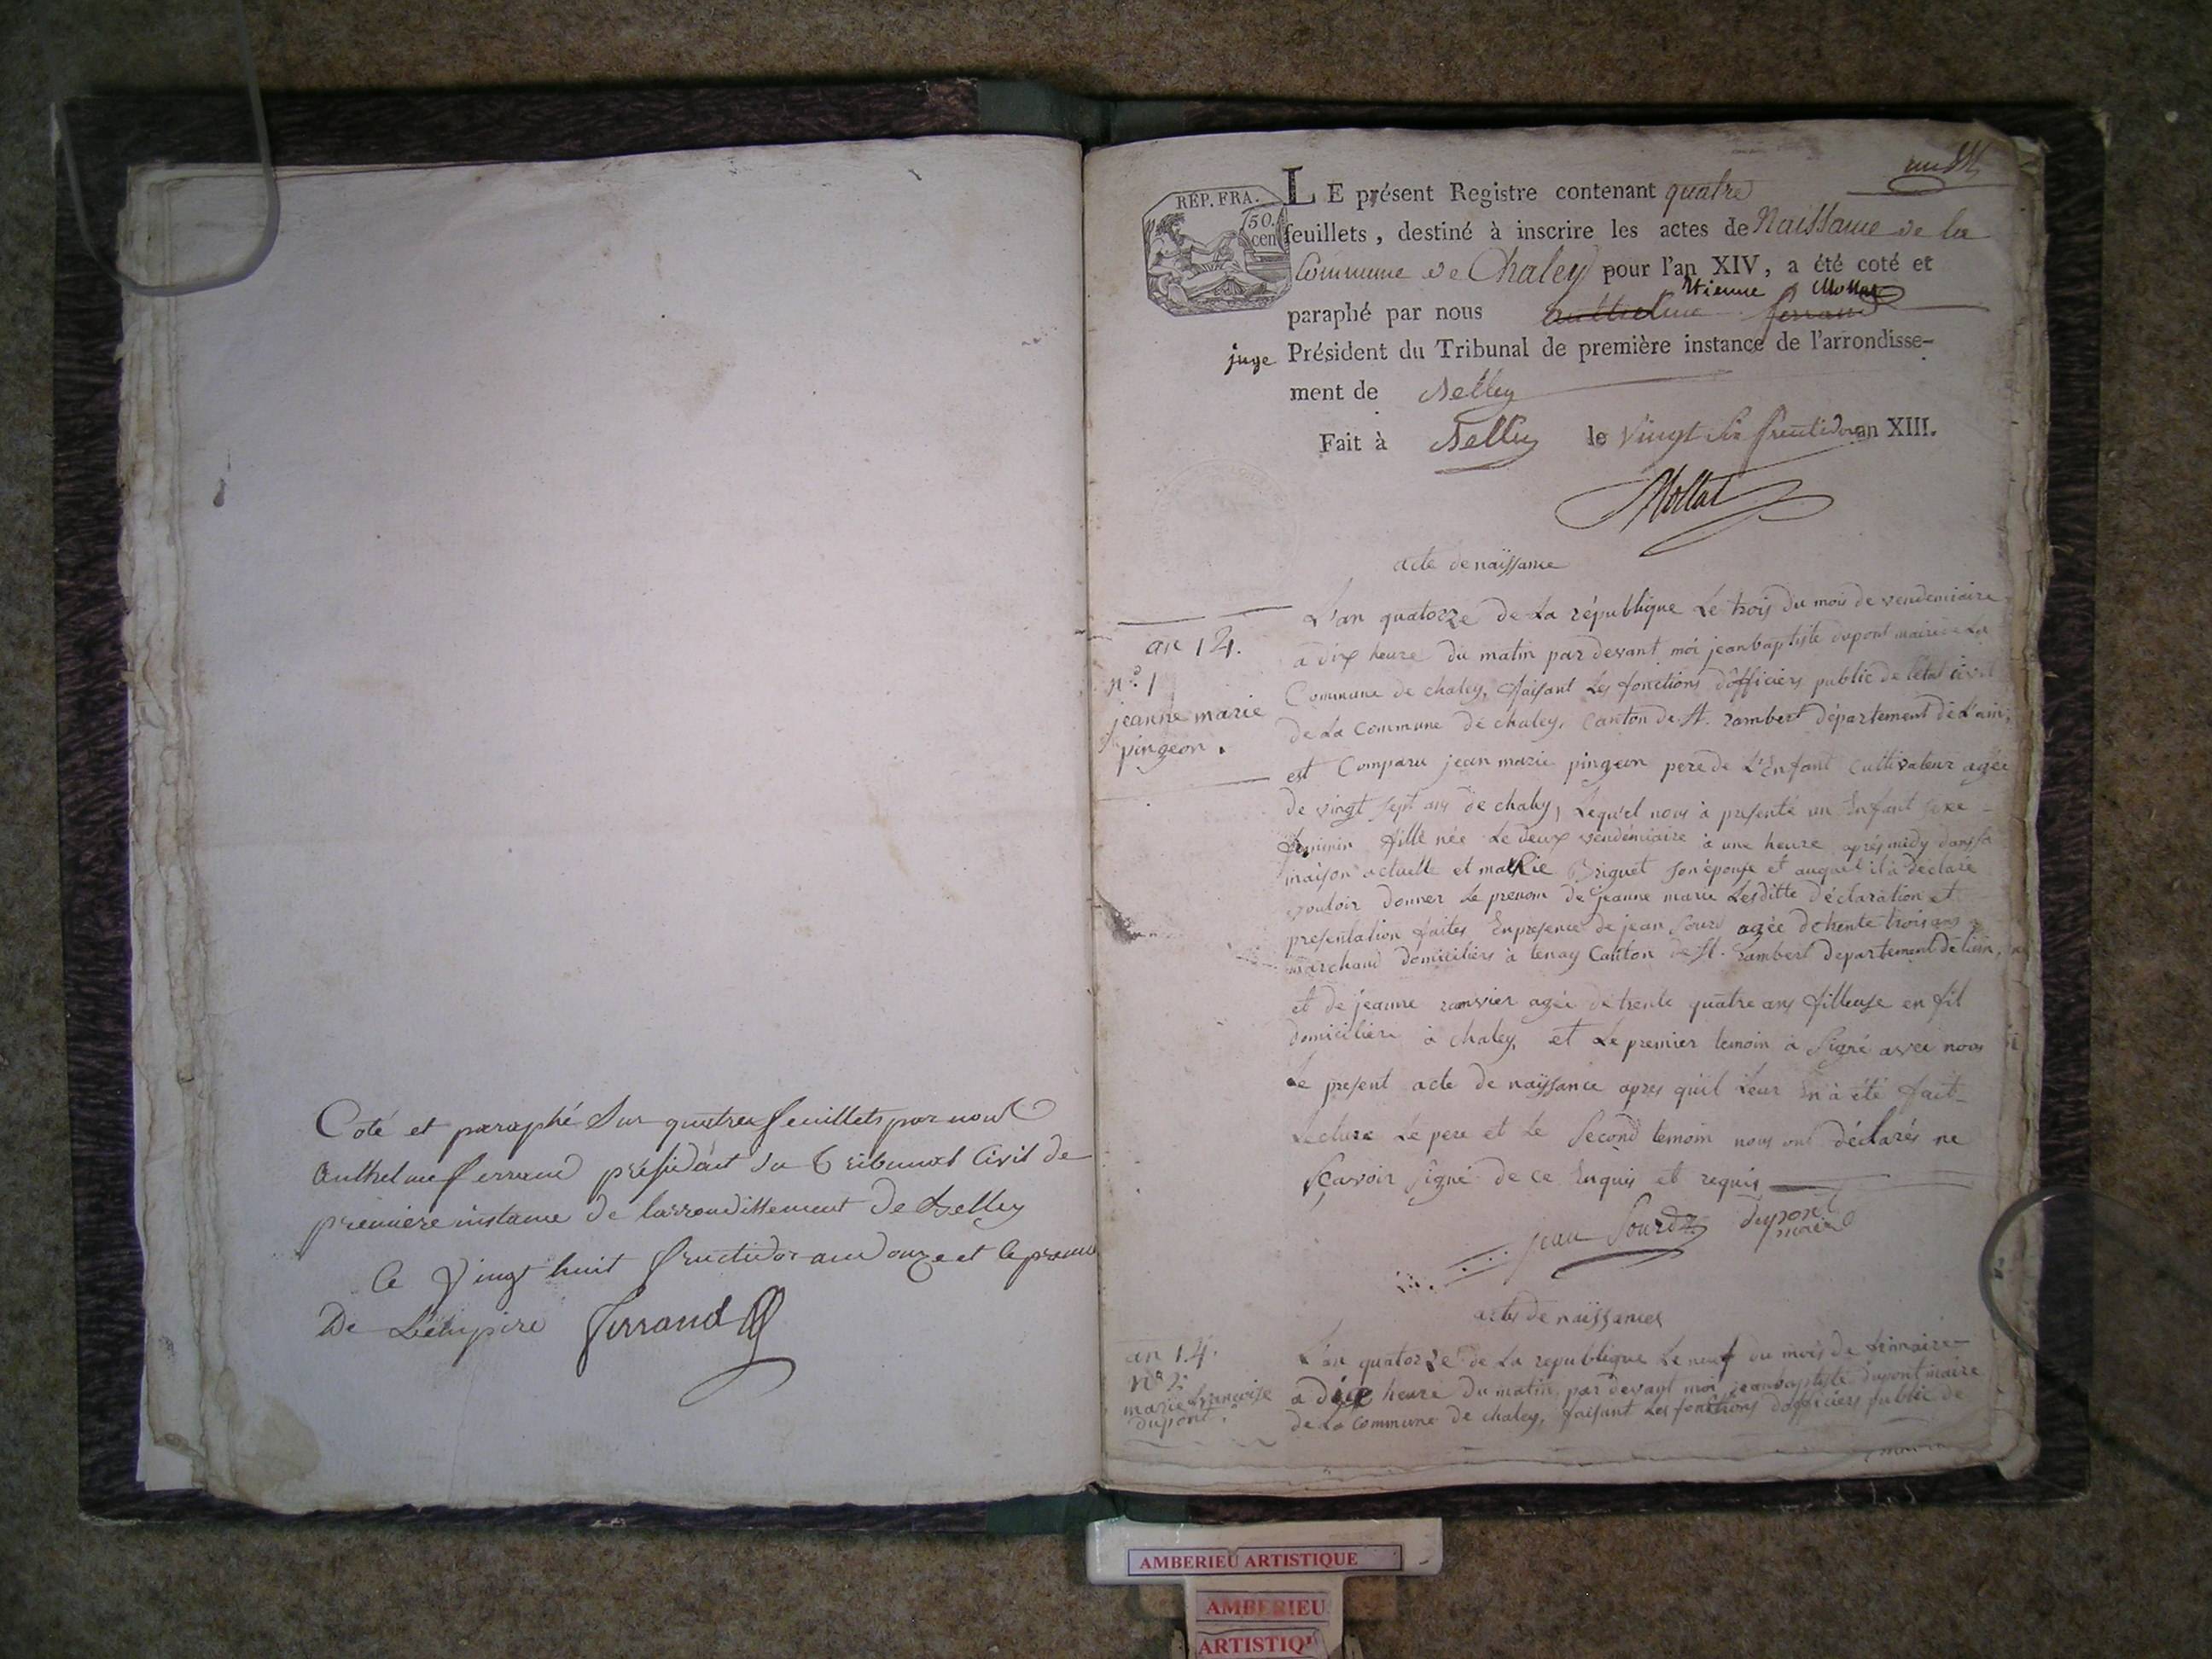 Coté et paraphé Sur quatre feuillets par nous
Anthelme ferrand président du Tribunal Civil de
premiere instance de larrondissement de Belley
Ce Vingt huit fructidor an douze et le premier
De L'empire Ferrand
REP. FRA.
50.
cen
LE présent Registre contenant quatre
feuillets, destiné à inscrire les actes de Naissance de la
Commune de Chaley pour l'an XIV, a été coté et
Etienne Mollat
paraphé par nous anthelme ferrand
juge Président du Tribunal de première instance de l'arrondisse-
ment de Belley
Fait à Belley le Vingt Six fructidor an XIII.
Mollat
acte de naissance
an 14.
n.° 1
jeanne marie
pingeon.
L'an quatorze de La république Le trois du mois de vendemiaire
a dix heure du matin par devant moi jean baptiste dupont maire de La
Commune de chaley, faisant Les fonctions d'officiers public de l'etat civil
de La Commune de chaley, Canton de St. rambert département de L'ain,
est Comparu jean marie pingeon pere de L'Enfant Cultivateur agée
de vingt sept ans de chaley, Lequ'el nous à présenté un Enfant sexe
feminin fille née Le deux vendémiaire à une heure après midy dans sa
maison actuelle et marie Briguet son épouse et auquel il à déclaré
vouloir donner Le prenom de jeanne marie Lesditte déclaration et
presentation faites En presence de jean Sourd agée de trente trois ans
marchand domiciliers à tenay Canton de St. rambert departement de Lain,
et de jeanne ranvier agée de trente quatre ans filleuse en fil
domiciliere à chaley, et Le premier temoin à Signé avec nous
Le present acte de naissance apres qu'il Leur En à été fait
Lecture Le pere et Le Second temoin nous ont déclarés ne
Scavoir Signé de ce Enquis et requis
jean Sourd dupont
maire
actes de naissances
an 14.
n° 2
marie francoise
dupont.
L'an quatorze de La republique Le neuf du mois de frimaire
a dix heure du matin par devant moi jean baptiste dupont maire
de La Commune de chaley, faisant Les fonctions d'officiers public de
AMBERIEU ARTISTIQUE
AMBERIEU
ARTISTIQU